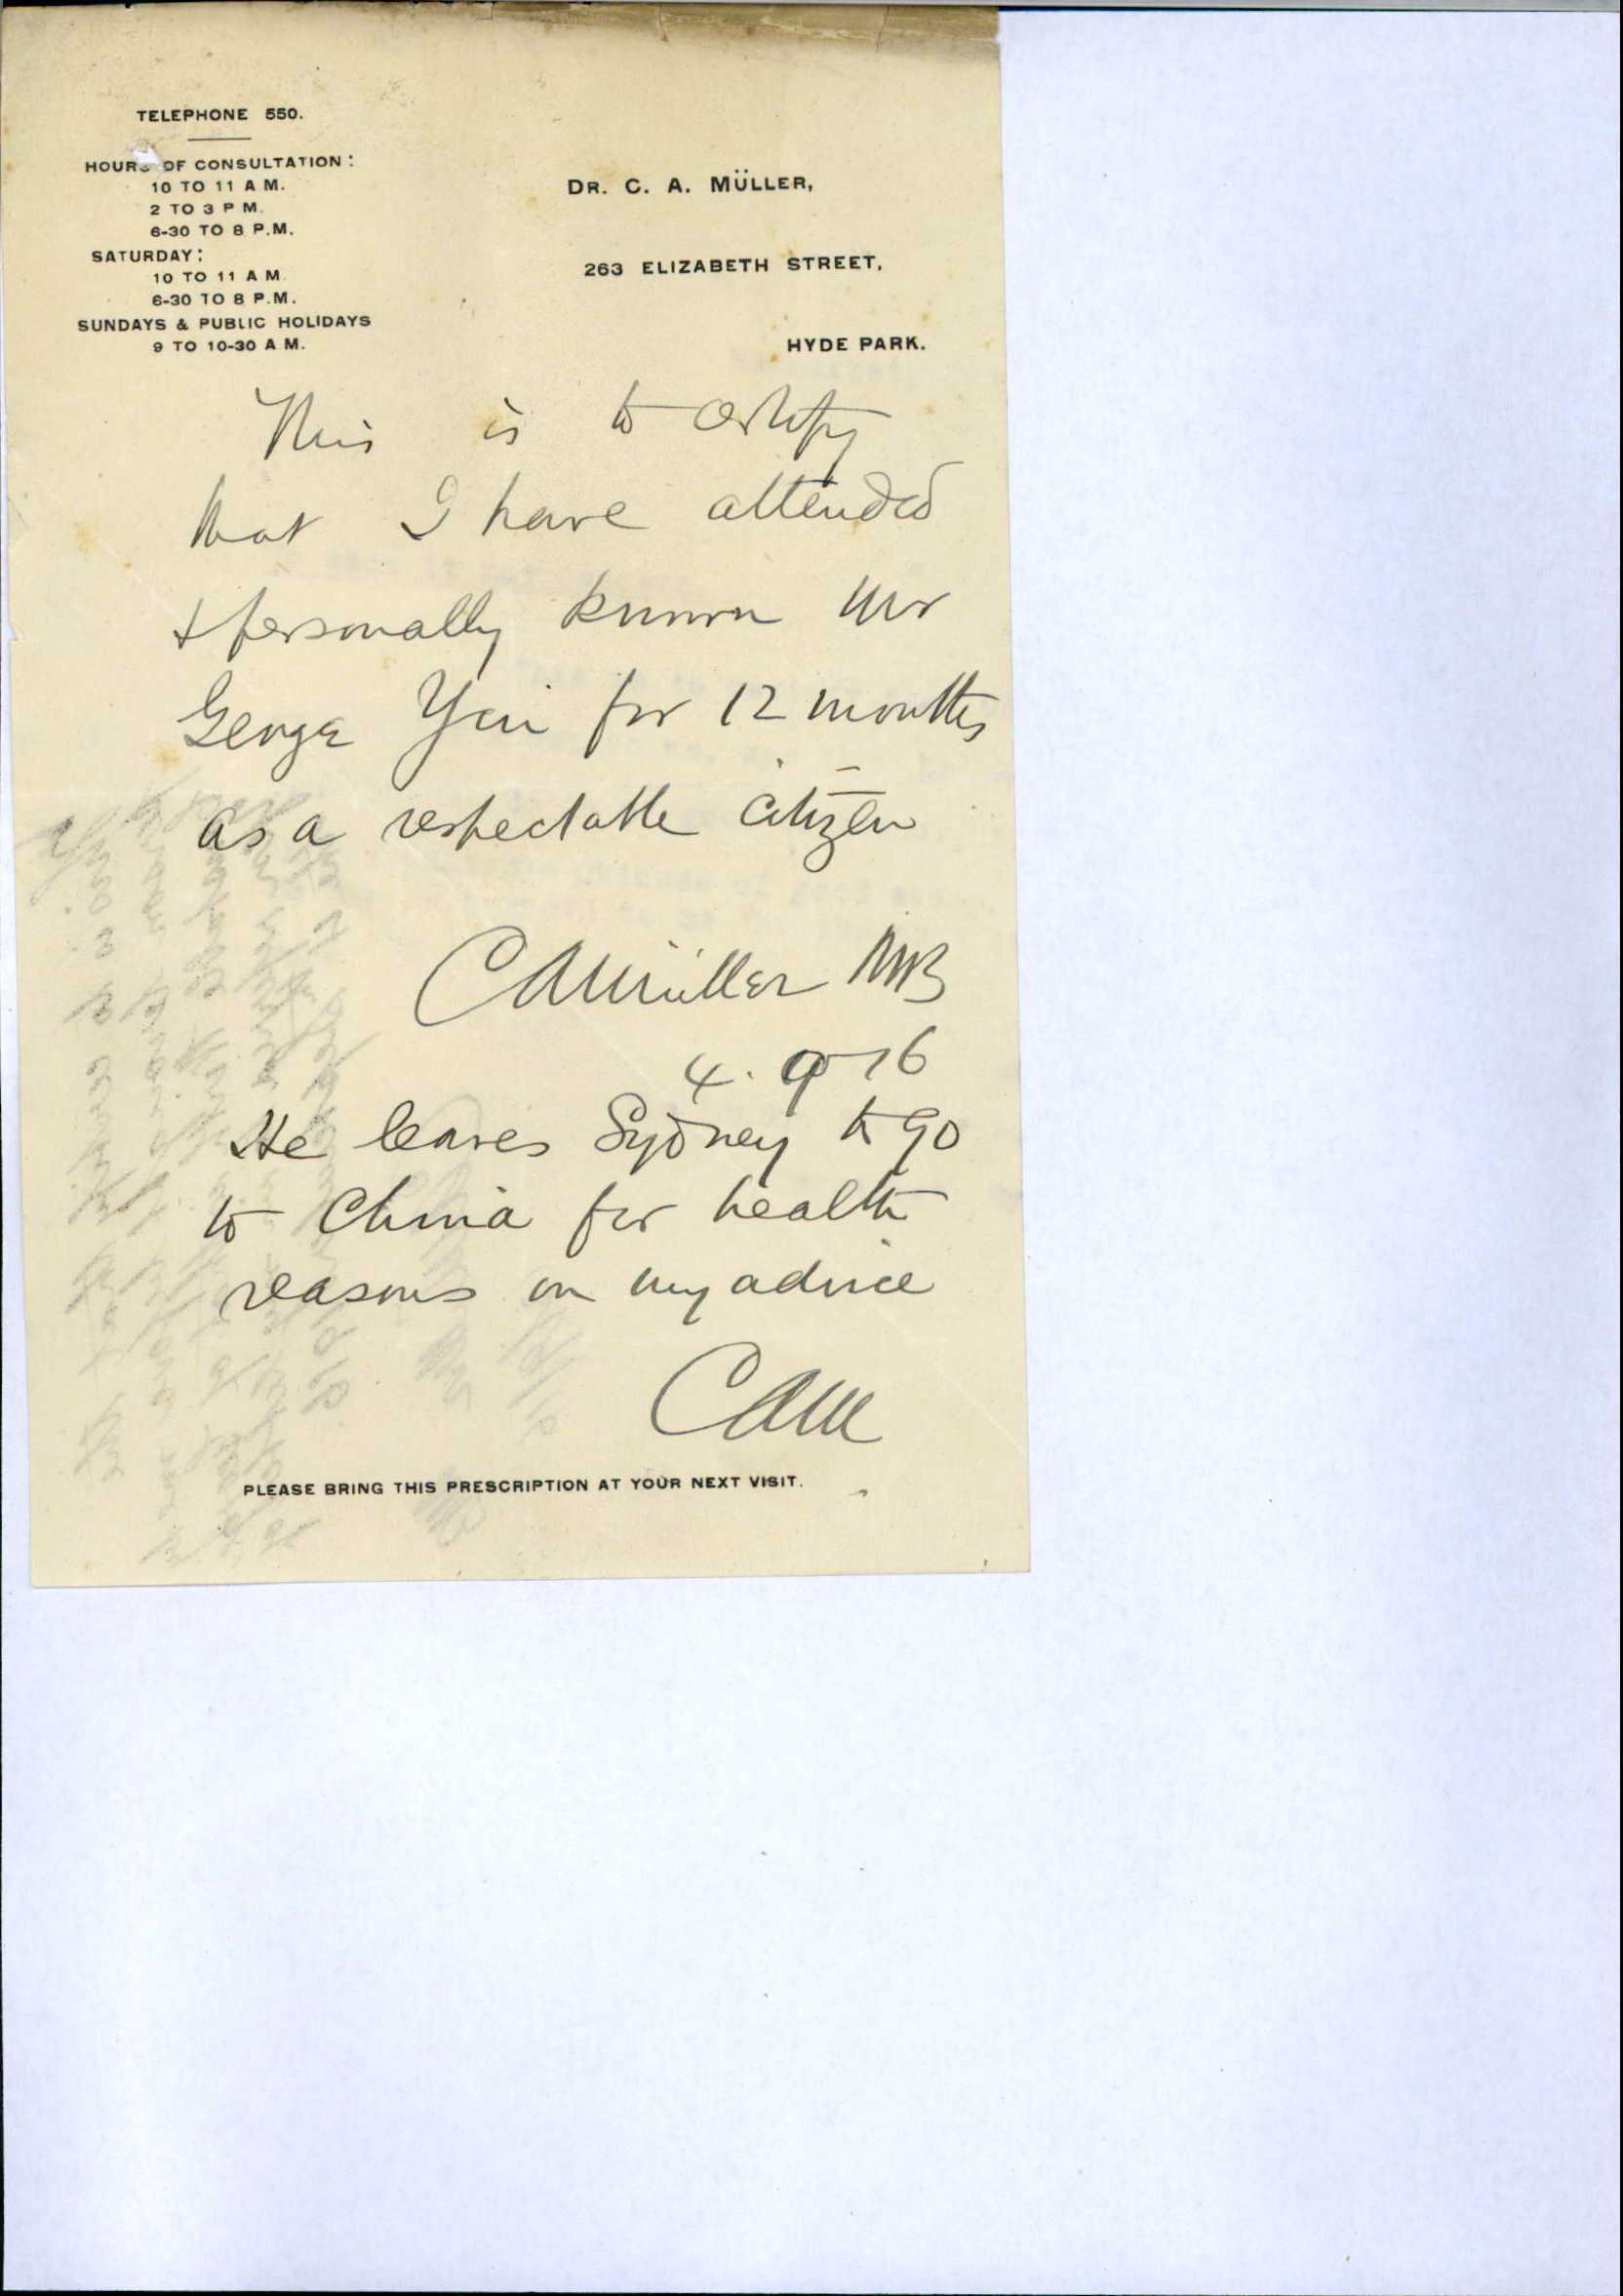 TELEPHONE 550.
HOURS OF CONSULTATION:
10 TO 11 A M.
2 TO 3 P M.
6-30 TO 8 P.M.
SATURDAY:
10 TO 11 A M
6-30 TO 8 P.M.
SUNDAYS & PUBLIC HOLIDAYS
9 TO 10-30 A M.
DR. C. A. MÜLLER,
263 ELIZABETH STREET,
HYDE PARK.
This is to certify
that I have attended
& personally known Mr
George Yin for 12 months
as a respectable citizen
CAMüller MB
4. 9 16
He leaves Sydney to go
to China for health
reasons on my advice
CAM
PLEASE BRING THIS PRESCRIPTION AT YOUR NEXT VISIT.